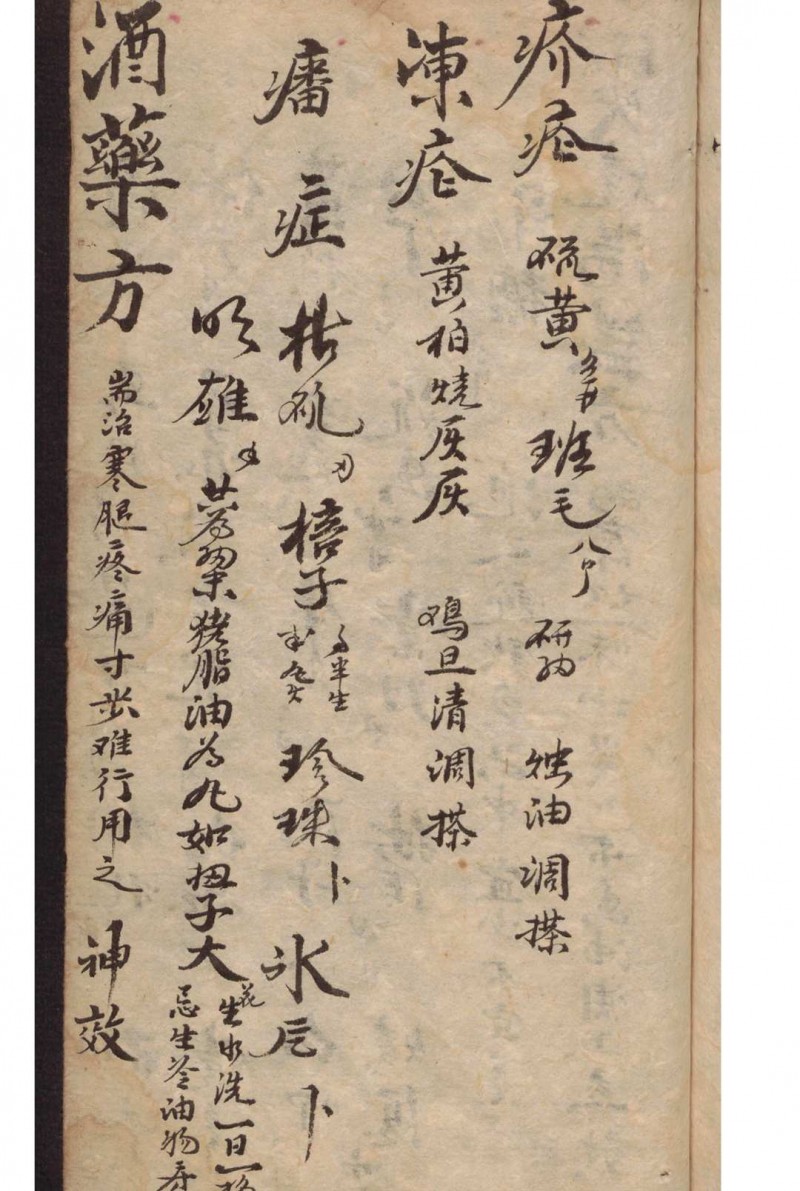 疥疮 硫黄 班毛 研 油调搽
冻疮 黄柏烧灰灰 鸡旦清调搽
症 枯矾 子 半生 珍珠 卜 氷片 卜
明雄 共为 猪脂油为丸如扭子大
花生水洗一日一
忌生冷油物
酒藥方 耑治寒腿疼痛寸步难行用之 神效